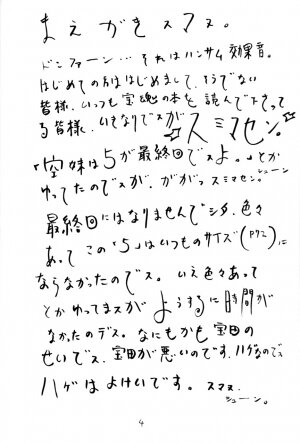 まえがきスマヌ。
ドンファーン…それはハンサム効果音。
はじめての方ははじめまして、そうでない
皆様、いつも宝魂の本を読んで下さって
る皆様、いきなりでスが
☆スミマセン。☆
「空妹は5が最終回でスよ。」とか
ゆってたのでスが、ががっスミマセン。シューン
最終回にはなりませんでシタ、色々
あってこの「5」はいつものサイズ(P数)に
ならなかったのでス。いえ色々あって
とかゆってまスが ようするに時間が
なかったのデス。なにもかも宝田の
せいでス、宝田が悪いのです、ハゲなのでス
ハゲはよけいです。スマヌ
シューン。
4